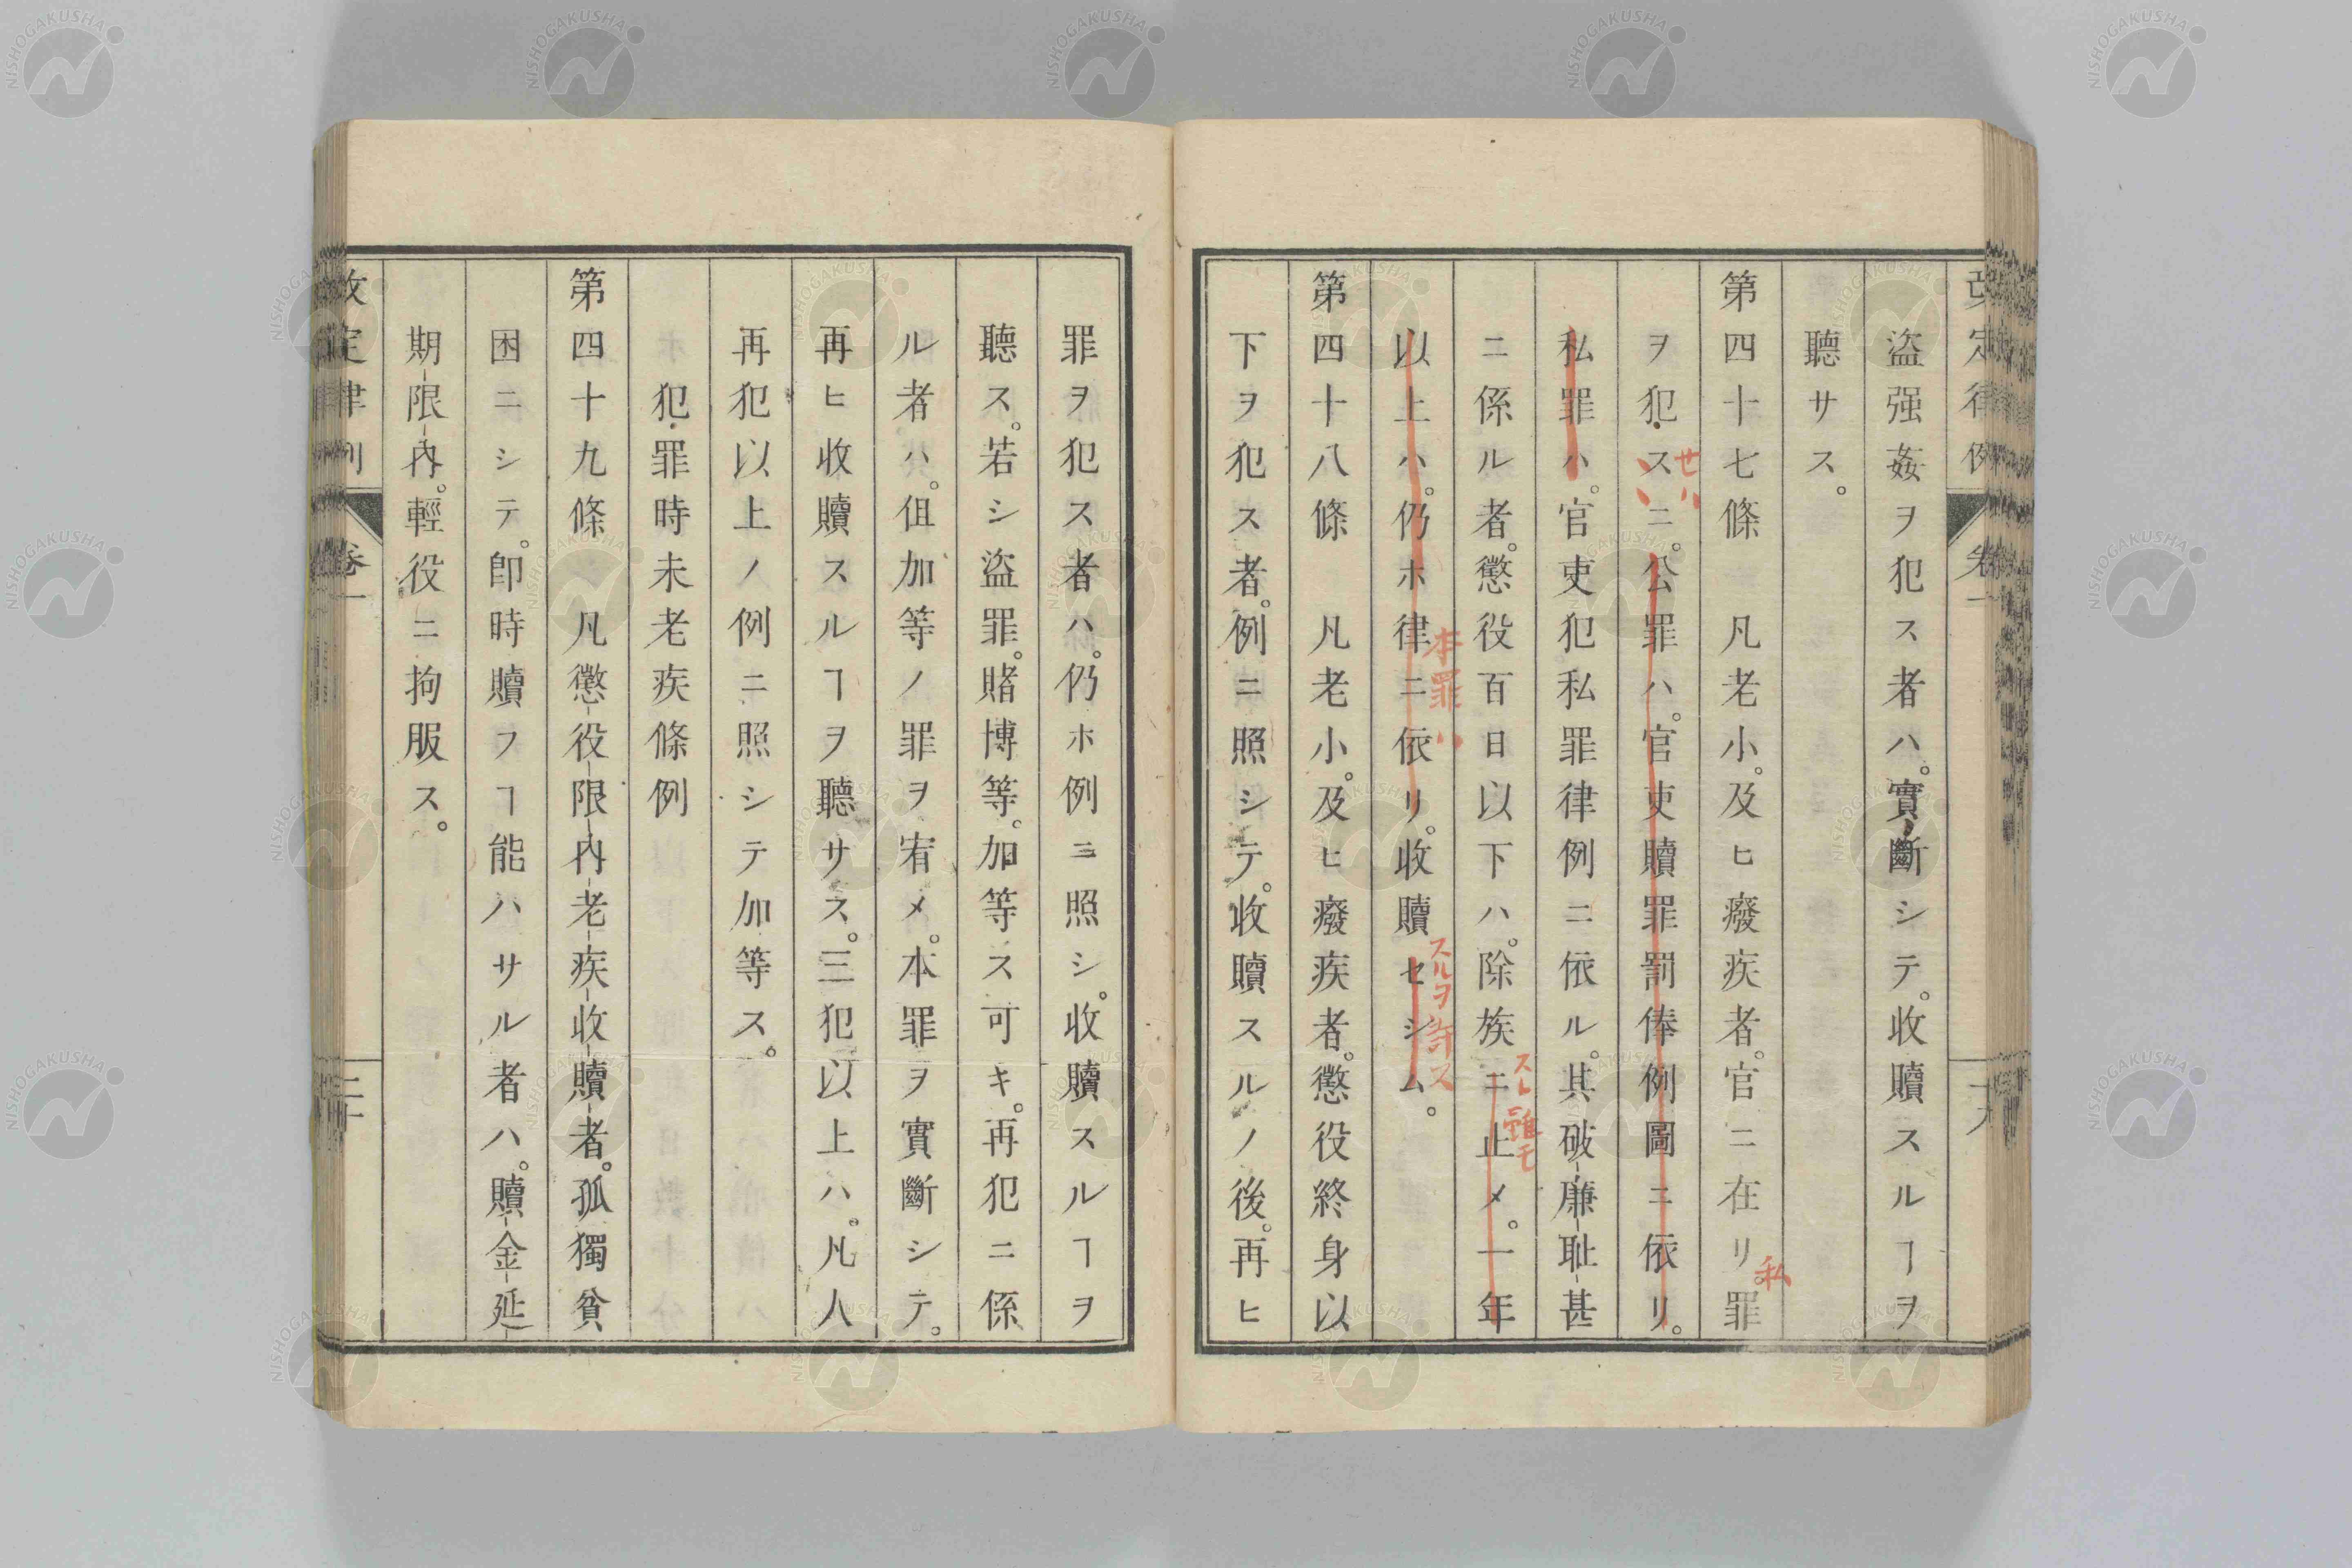 改定律例 卷一
盜强姦ヲ犯ス者ハ。實斷シテ。收贖スルヿヲ
聽サス。
第四十七條 凡老小。及ヒ癈疾者。官ニ在リ。罪
私
ヲ犯スニ。公罪ハ。官吏贖罪罰俸例圖ニ依リ。
セハ
私罪ハ。官吏犯私罪律例ニ依ル。其破廉耻甚
ニ係ル者。懲役百日以下ハ。除族ニ止メ。一年
スト雖モ
以上ハ。仍ホ律ニ依リ。收贖セシム。
本罪ハ
スルヲ許ス
第四十八條 凡老小。及ヒ癈疾者。懲役終身以
下ヲ犯ス者。例ニ照シテ。收贖スルノ後。再ヒ
罪ヲ犯ス者ハ。仍ホ例ニ照シ。收贖スルヿヲ
聽ス。若シ盜罪。賭博等。加等ス可キ。再犯ニ係
ル者ハ。但加等ノ罪ヲ宥メ。本罪ヲ實斷シテ。
再ヒ收贖スルヿヲ聽サス。三犯以上ハ。凡人
再犯以上ノ例ニ照シテ加等ス。
犯罪時未老疾條例
第四十九條 凡懲役限内老疾收贖者。孤獨貧
困ニシテ。卽時贖フヿ能ハサル者ハ。贖金延
期限内。輕役ニ拘服ス。
改定律例 卷一 二十
NISHOGAKUSHA